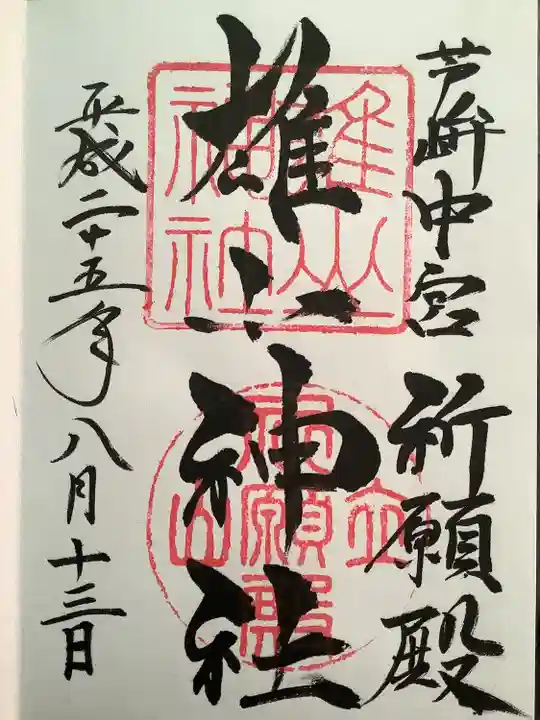 芦峅中宮 祈願殿
雄山神社
平成二十五年八月十三日
雄山神社
立山
祈願殿